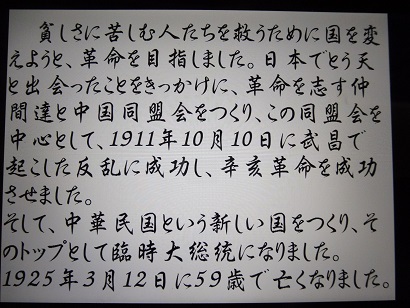 貧しさに苦しむ人たちを救うために国を変
えようと、革命を目指しました。日本でとう天
と出会ったことをきっかけに、革命を志す仲
間達と中国同盟会をつくり、この同盟会を
中心として、1911年10月10日に武昌で
起こした反乱に成功し、辛亥革命を成功
させました。
そして、中華民国という新しい国をつくり、そ
のトップとして臨時大総統になりました。
1925年3月12日に59歳で亡くなりました。